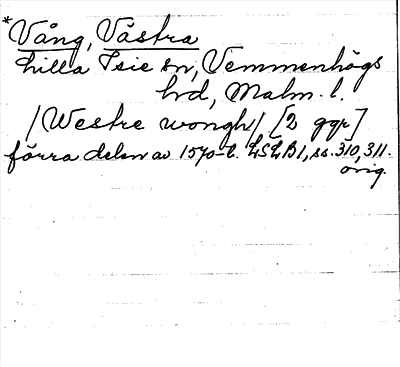 *Vång, Västra
Lilla Isie sn, Vemmenhögs
hrd, Malm. l.
/Westre wongh/ [2 ggr]
förra delen av 1570-t. LSLB1, ss. 310, 311.
orig.